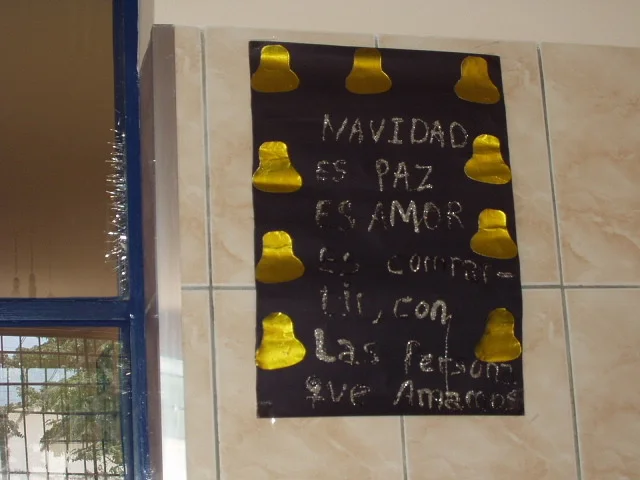 NAVIDAD
ES PAZ
ES AMOR
Es compar-
tir, con
Las Person
que Amamos